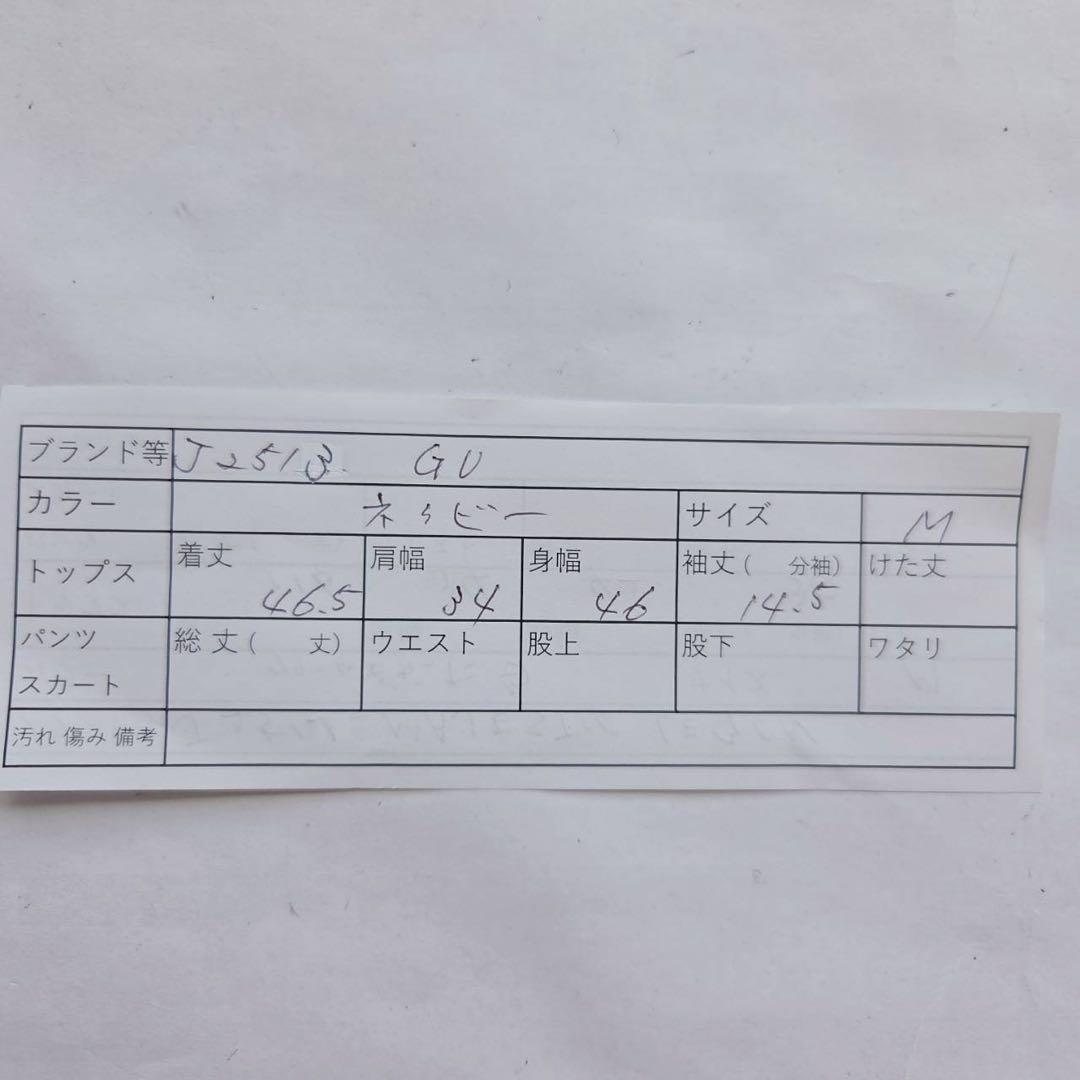 ブランド等 J2513. GU
カラー ネイビー サイズ M
トップス 着丈 46.5 肩幅 34 身幅 46 袖丈( 分袖) 14.5 けた丈
パンツ スカート 総丈( 丈) ウエスト 股上 股下 ワタリ
汚れ 傷み 備考